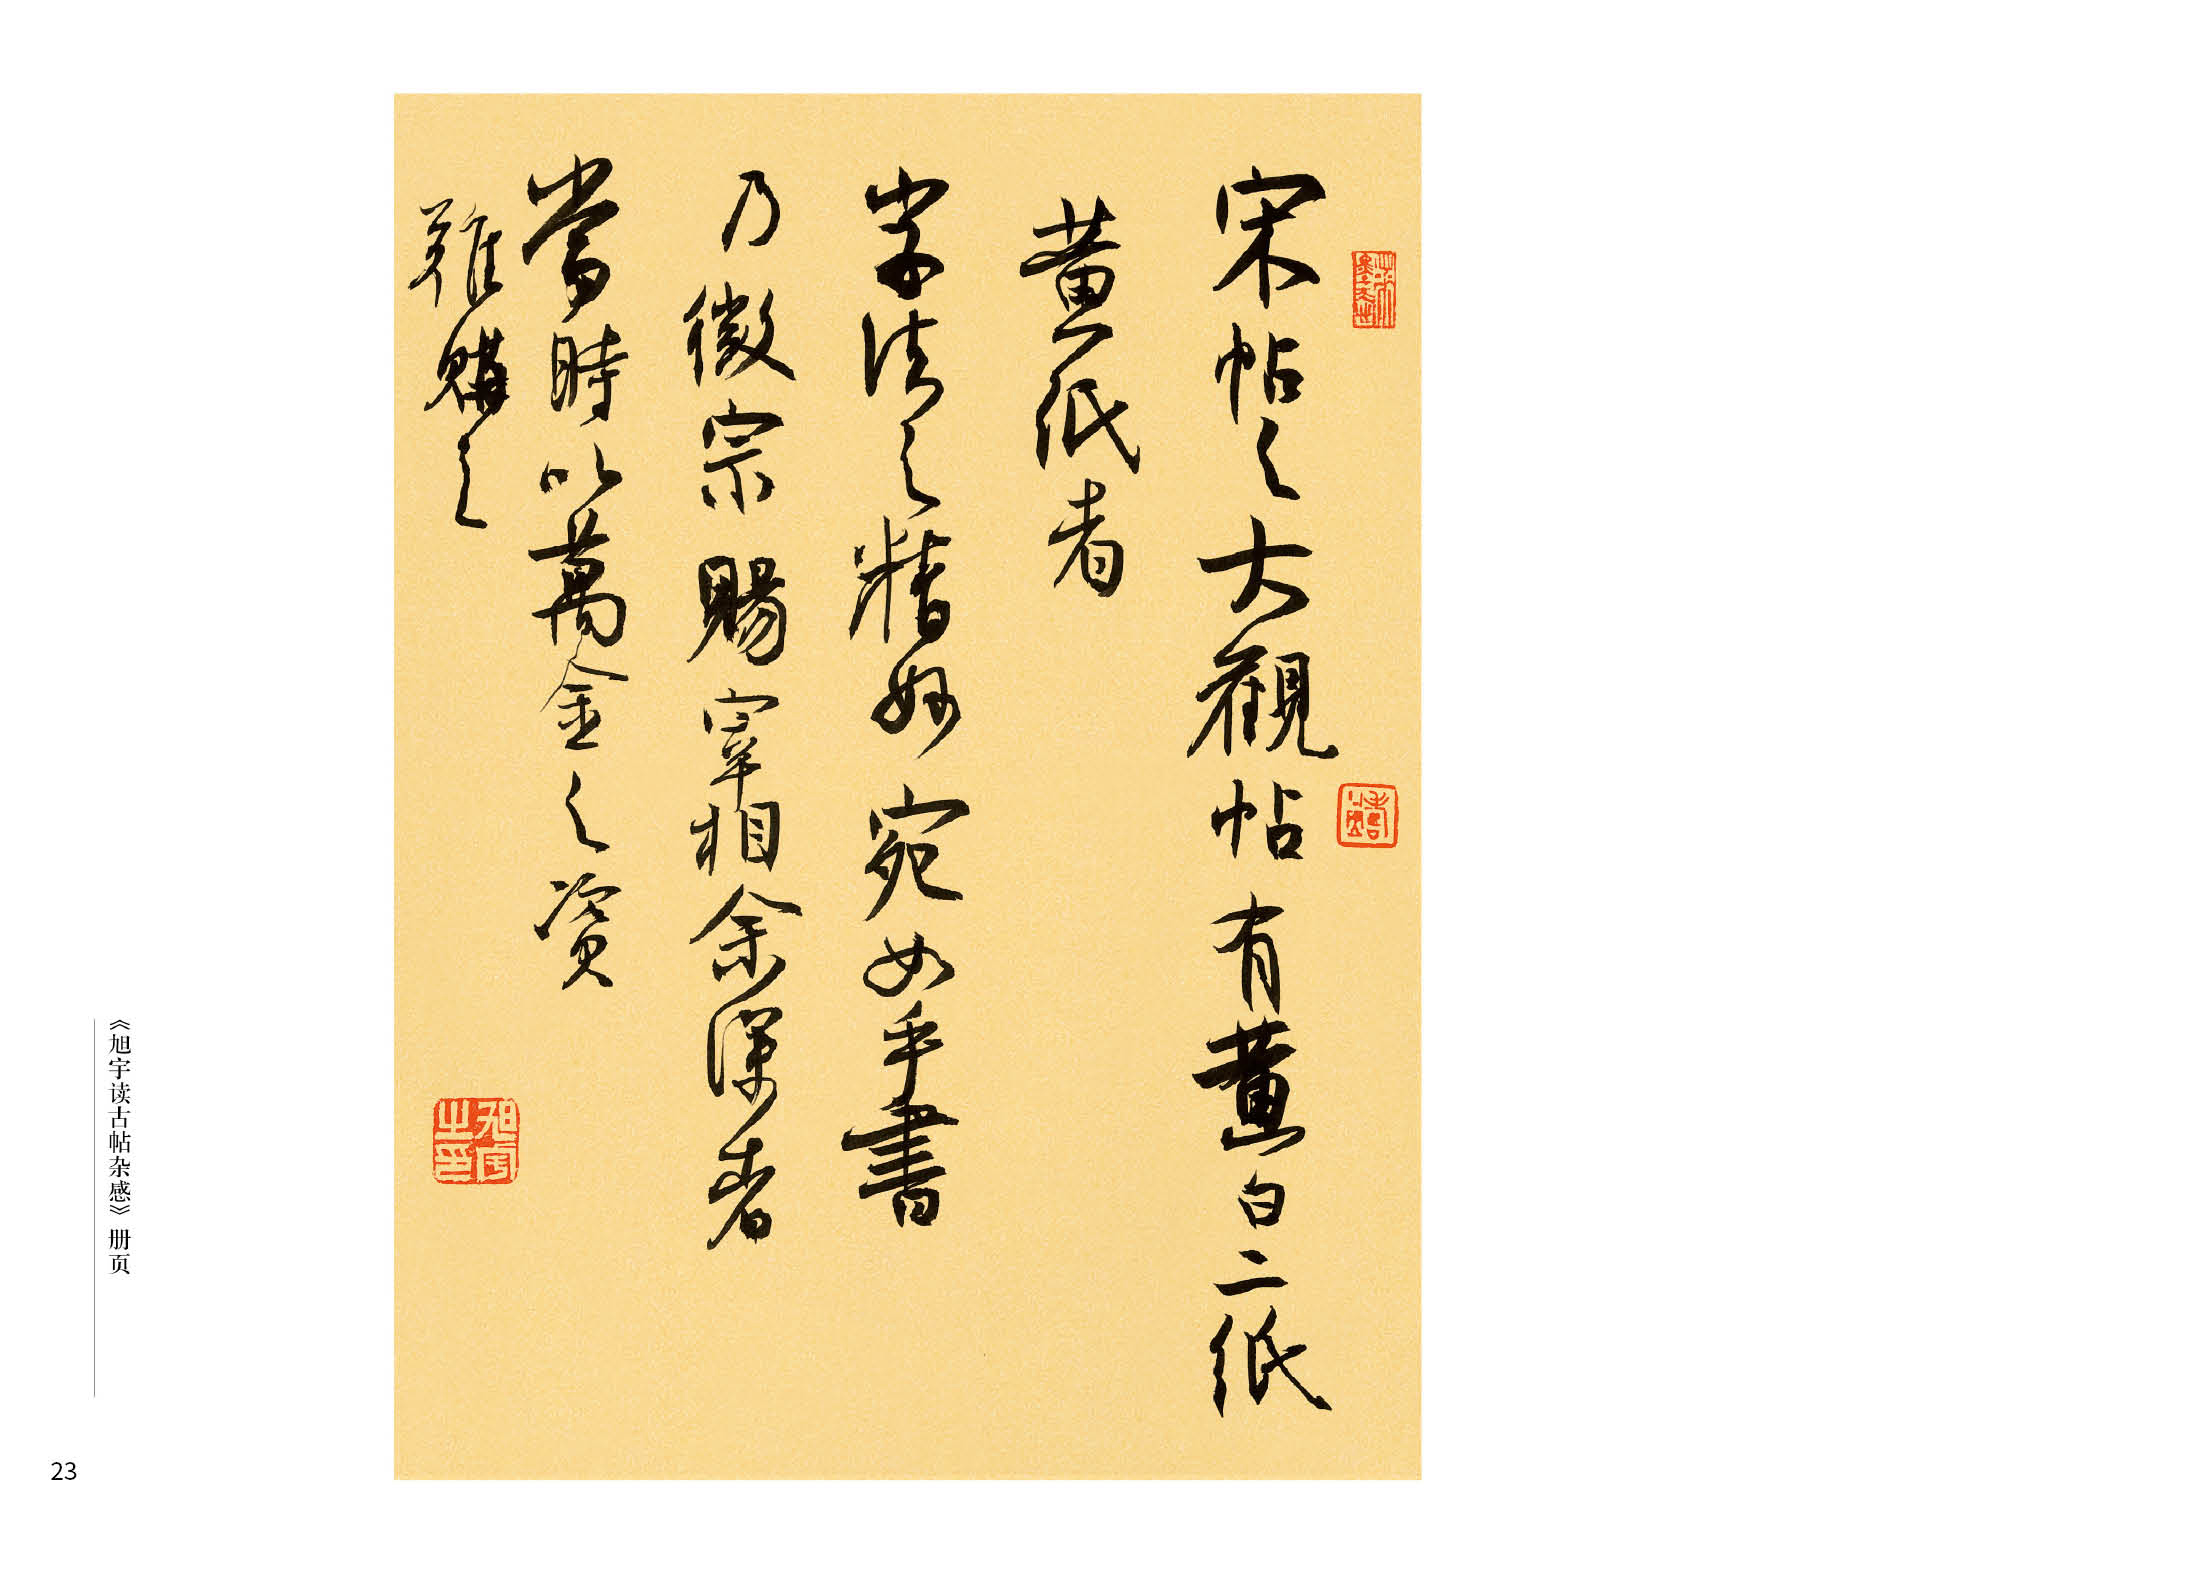 宋帖之大觀帖有黃白二紙
黃紙者
字法之精妙宛如手書
乃徽宗賜宰相余深者
當時以萬金之資
難購之
旭宇之印
《旭宇读古帖杂感》册页
23